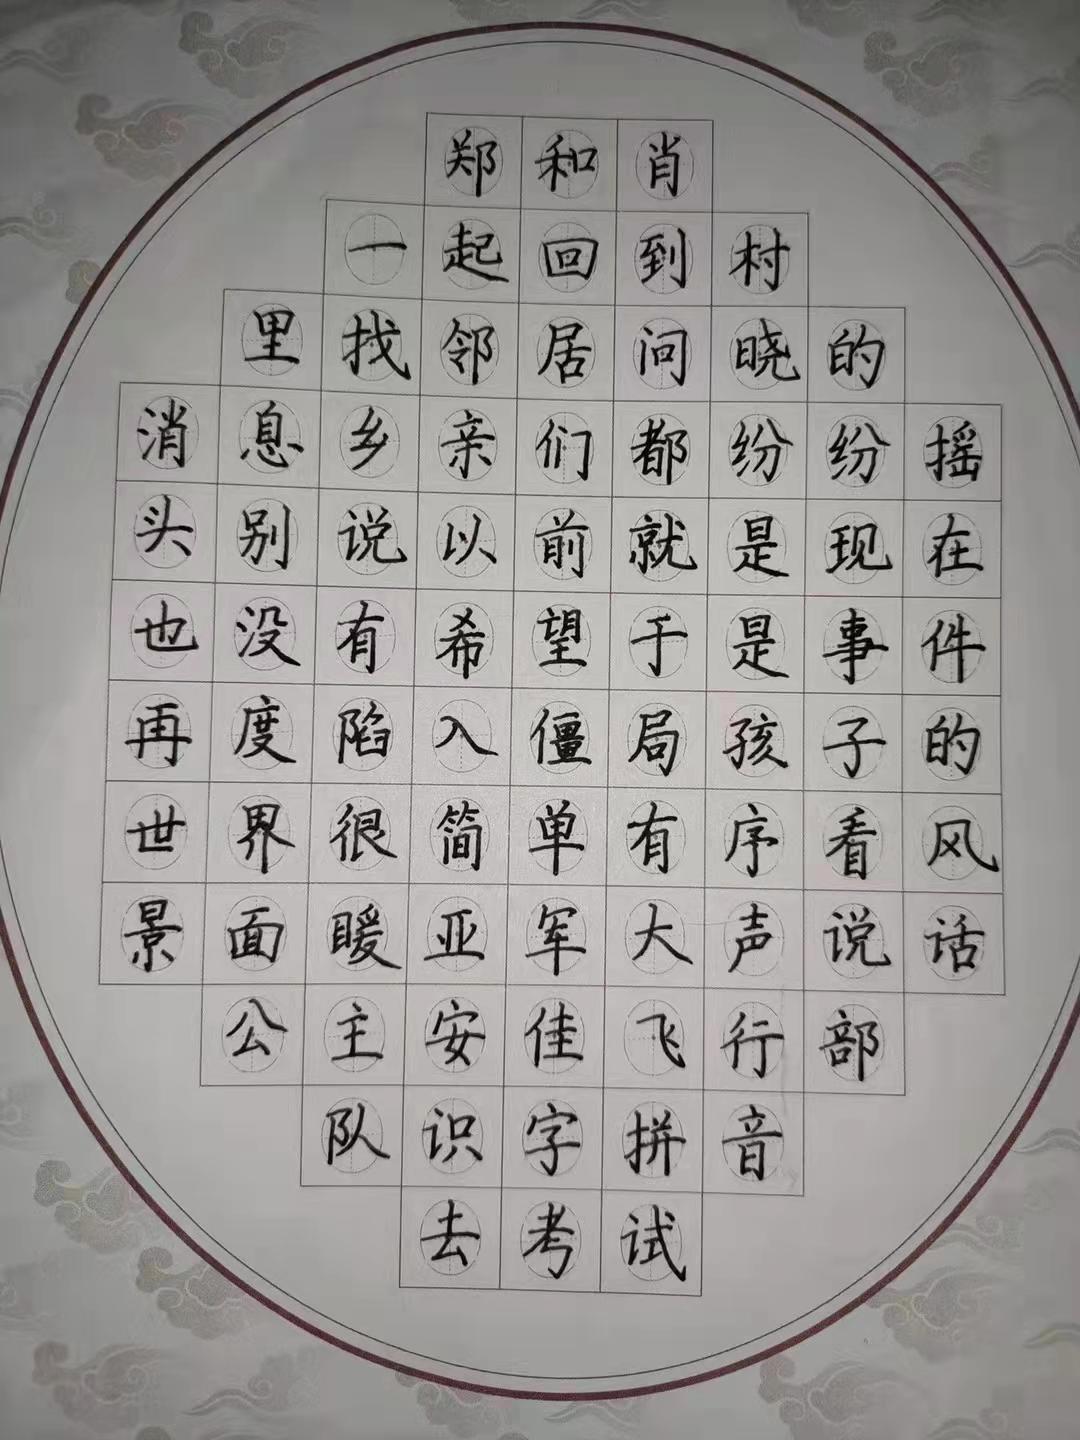 郑和肖
一起回到村
里找邻居问晓的
消息乡亲们都纷纷摇
头别说以前就是现在
也没有希望于是事件
再度陷入僵局孩子的
世界很简单有序看风
景面暖亚军大声说话
公主安佳飞行部
队识字拼音
去考试